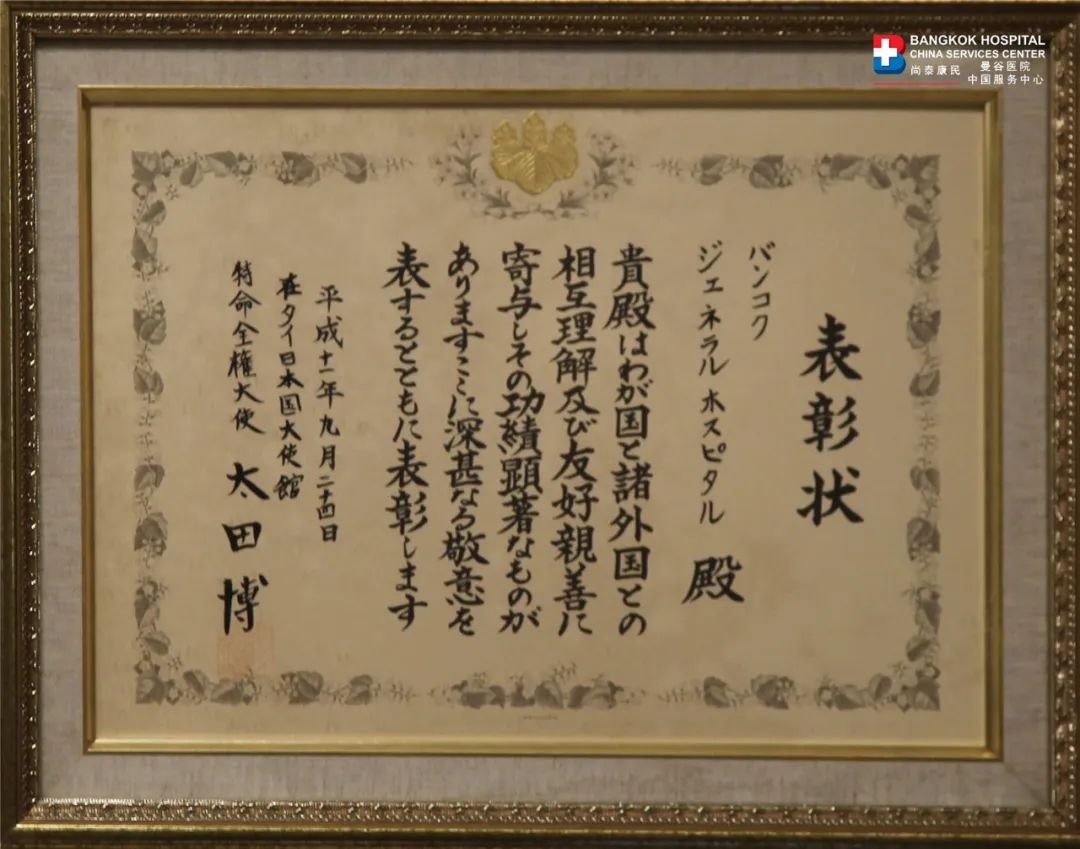 BANGKOK HOSPITAL
CHINA SERVICES CENTER
尚泰康民 曼谷医院
中国服务中心
表彰状
バンコク
ジェネラル ホスピタル 殿
貴殿はわが国と諸外国との
相互理解及び友好親善に
寄与しその功績顕著なものが
ありますここに深甚なる敬意を
表するとともに表彰します
平成十一年九月二十四日
在タイ日本国大使館
特命全権大使 太田 博